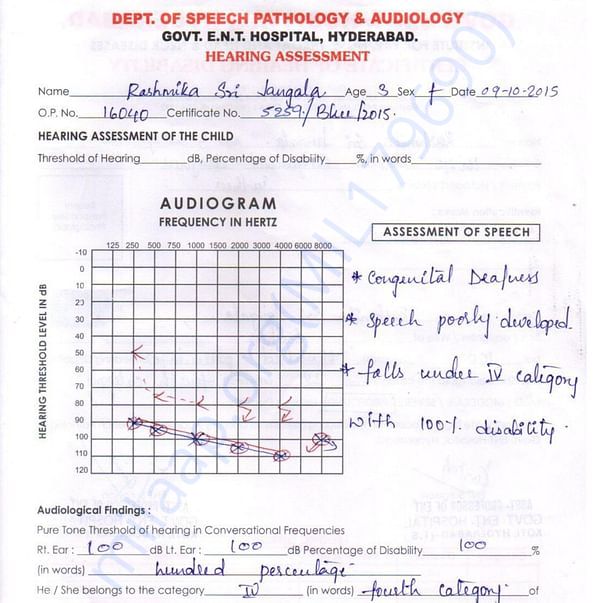 DEPT. OF SPEECH PATHOLOGY & AUDIOLOGY
GOVT. E.N.T. HOSPITAL, HYDERABAD.
HEARING ASSESSMENT
Name Rashmika Sri Jangala Age 3 Sex f Date 09-10-2015
O.P. No. 16040 Certificate No. 5259/Bhee/2015.
HEARING ASSESSMENT OF THE CHILD
Threshold of Hearing dB, Percentage of Disability %, in words
AUDIOGRAM
FREQUENCY IN HERTZ
ASSESSMENT OF SPEECH
125 250 500 750 1000 1500 2000 3000 4000 6000 8000
HEARING THRESHOLD LEVEL IN dB
-10
0
10
20
30
40
50
60
70
80
90
100
110
120
* Congenital Deafness
* Speech poorly developed.
* falls under IV category
with 100% disability.
milaap.org(MIL179690)
Audiological Findings :
Pure Tone Threshold of hearing in Conversational Frequencies
Rt. Ear : 100 dB Lt. Ear : 100 dB Percentage of Disability 100 %
(in words) hundred percentage
He / She belongs to the category IV (in words) fourth category of